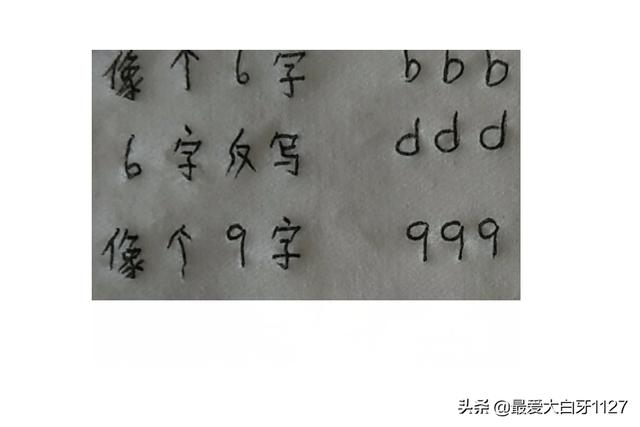 像个6字 bbb
6字反写 ddd
像个9字 qqq
头条 @最爱大白牙1127